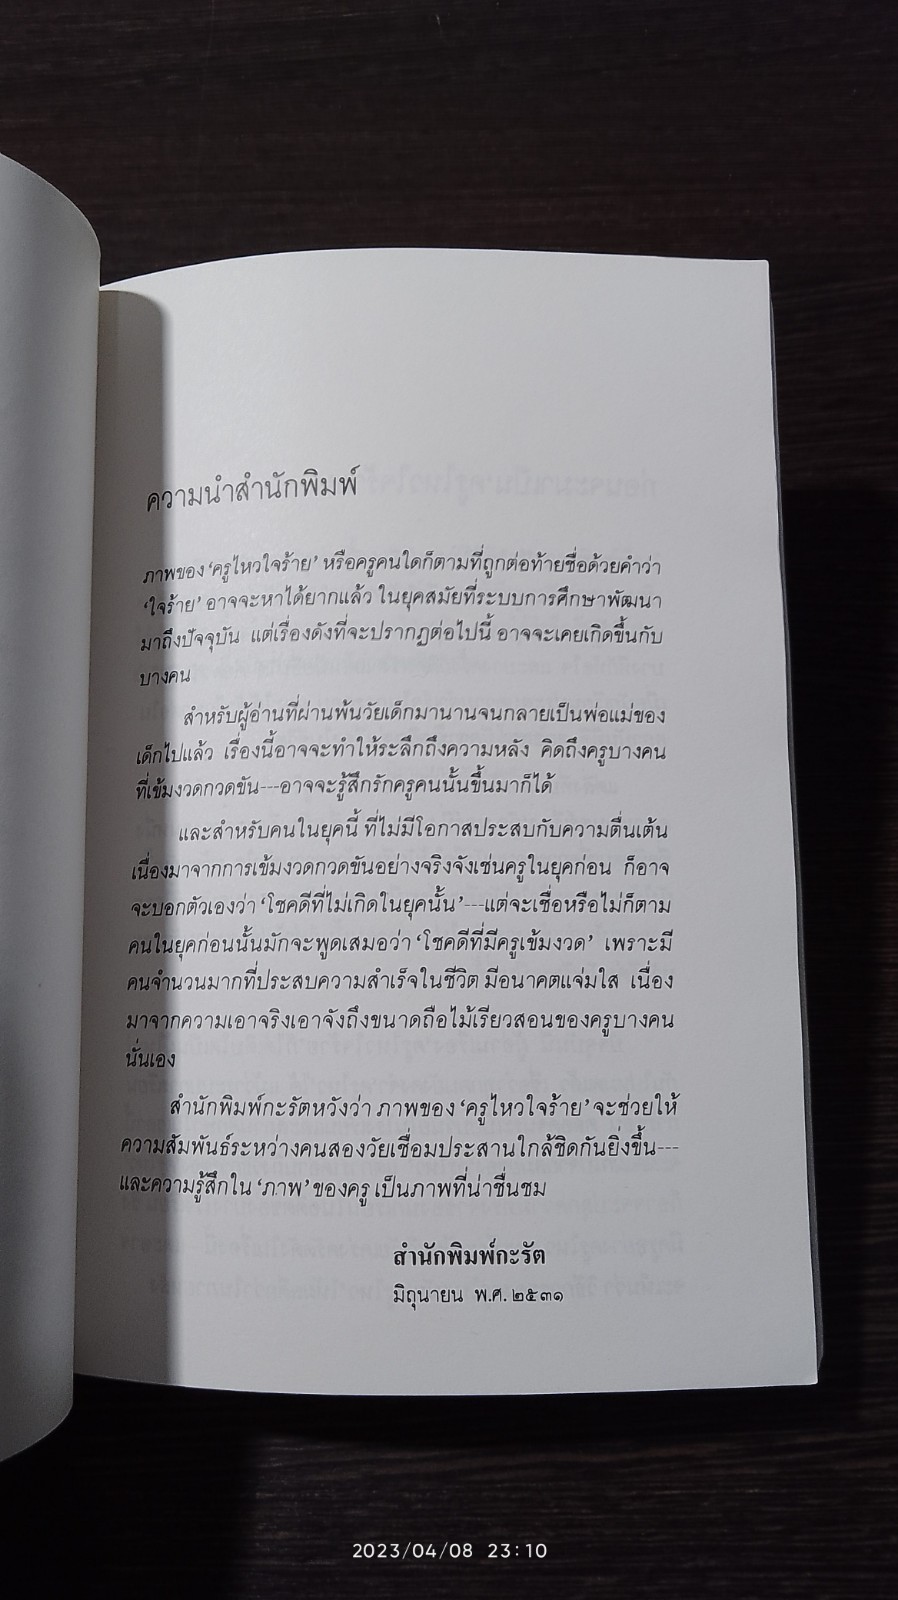 ความนำสำนักพิมพ์
ภาพของ ‘ครูไหวใจร้าย’ หรือครูคนใดก็ตามที่ถูกต่อท้ายชื่อด้วยคำว่า
‘ใจร้าย’ อาจจะหาได้ยากแล้ว ในยุคสมัยที่ระบบการศึกษาพัฒนา
มาถึงปัจจุบัน แต่เรื่องดังที่จะปรากฏต่อไปนี้ อาจจะเคยเกิดขึ้นกับ
บางคน
สำหรับผู้อ่านที่ผ่านพ้นวัยเด็กมานานจนกลายเป็นพ่อแม่ของ
เด็กไปแล้ว เรื่องนี้อาจจะทำให้ระลึกถึงความหลัง คิดถึงครูบางคน
ที่เข้มงวดกวดขัน---อาจจะรู้สึกรักครูคนนั้นขึ้นมาก็ได้
และสำหรับคนในยุคนี้ ที่ไม่มีโอกาสประสบกับความตื่นเต้น
เนื่องมาจากการเข้มงวดกวดขันอย่างจริงจังเช่นครูในยุคก่อน ก็อาจ
จะบอกตัวเองว่า ‘โชคดีที่ไม่เกิดในยุคนั้น’---แต่จะเชื่อหรือไม่ก็ตาม
คนในยุคก่อนนั้นมักจะพูดเสมอว่า ‘โชคดีที่มีครูเข้มงวด’ เพราะมี
คนจำนวนมากที่ประสบความสำเร็จในชีวิต มีอนาคตแจ่มใส เนื่อง
มาจากความเอาจริงเอาจังถึงขนาดถือไม้เรียวสอนของครูบางคน
นั่นเอง
สำนักพิมพ์กะรัตหวังว่า ภาพของ ‘ครูไหวใจร้าย’ จะช่วยให้
ความสัมพันธ์ระหว่างคนสองวัยเชื่อมประสานใกล้ชิดกันยิ่งขึ้น---
และความรู้สึกใน ‘ภาพ’ ของครู เป็นภาพที่น่าชื่นชม
สำนักพิมพ์กะรัต
มิถุนายน พ.ศ. ๒๕๓๑
2023/04/08 23:10